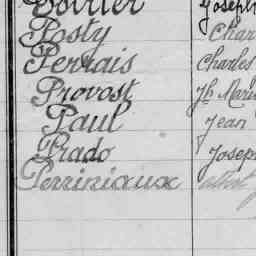 Poirier Joseph
Posty Char
Perrais Charles
Provost Jh Marie
Paul Jean
Prado Joseph
Perriniaux